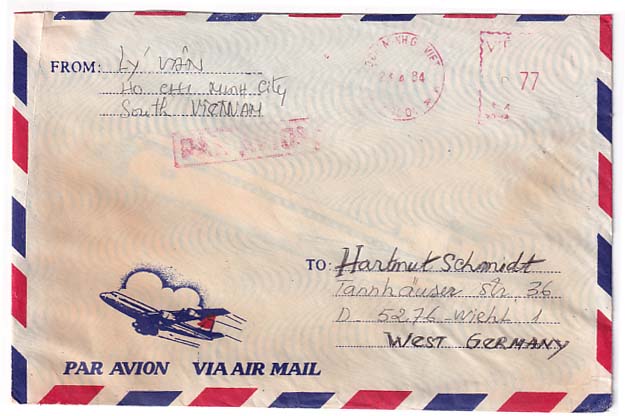 FROM: Lý VÂN
HO CHI MINH City
South VIETNAM
4 84
77
PAR AVION
TO: Hartmut Schmidt
Tannhäuser Str 36
D 5276 Wiehl 1
WEST GERMANY
PAR AVION VIA AIR MAIL